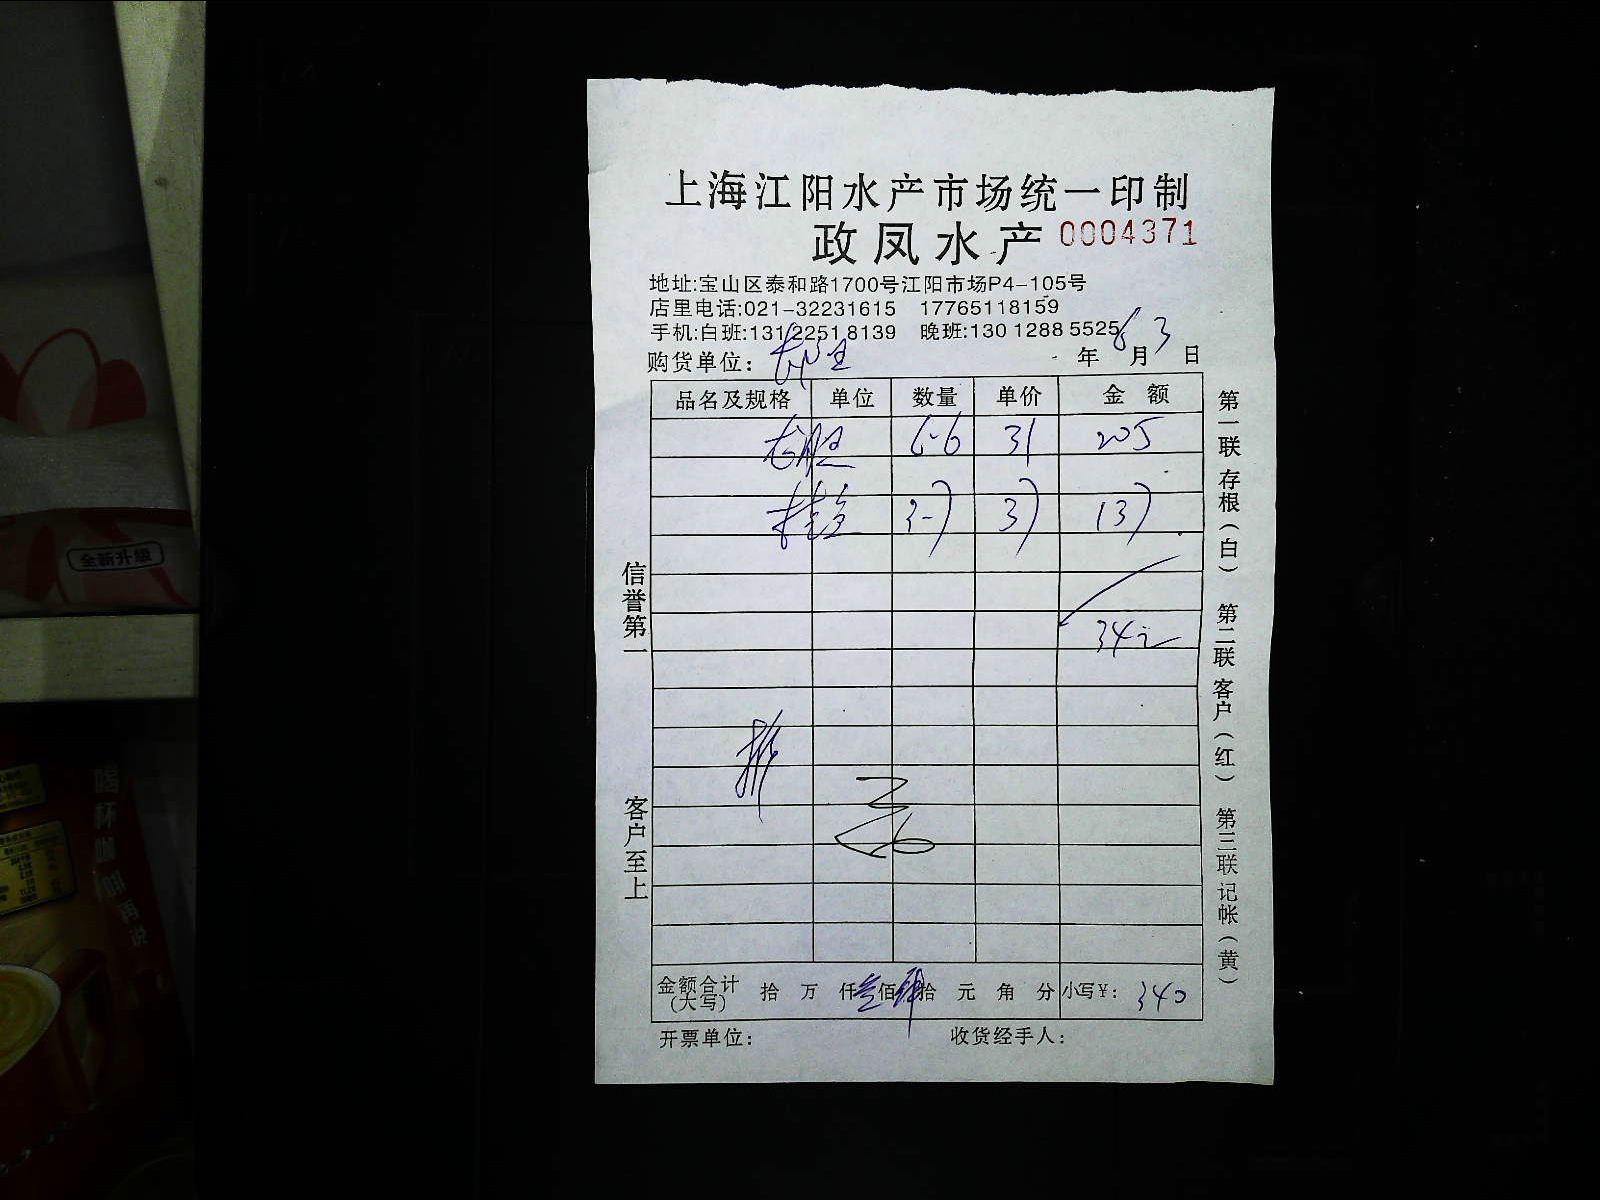 上海江阳水产市场统一印制
政凤水产 0004371
地址:宝山区泰和路1700号江阳市场P4-105号
店里电话:021-32231615 17765118159
手机:白班:131 2251 8139 晚班:130 1288 5525
购货单位: 年 6 月 3 日
品名及规格 单位 数量 单价 金 额
6-6 31 205
桂鱼 3-7 37 137
金额合计(大写) 拾 万 仟 佰 拾 元 角 分 小写¥: 340
开票单位: 收货经手人:
信誉第一
客户至上
第一联 存根(白) 第二联 客户(红) 第三联 记帐(黄)
全新升級
喝杯咖啡再说